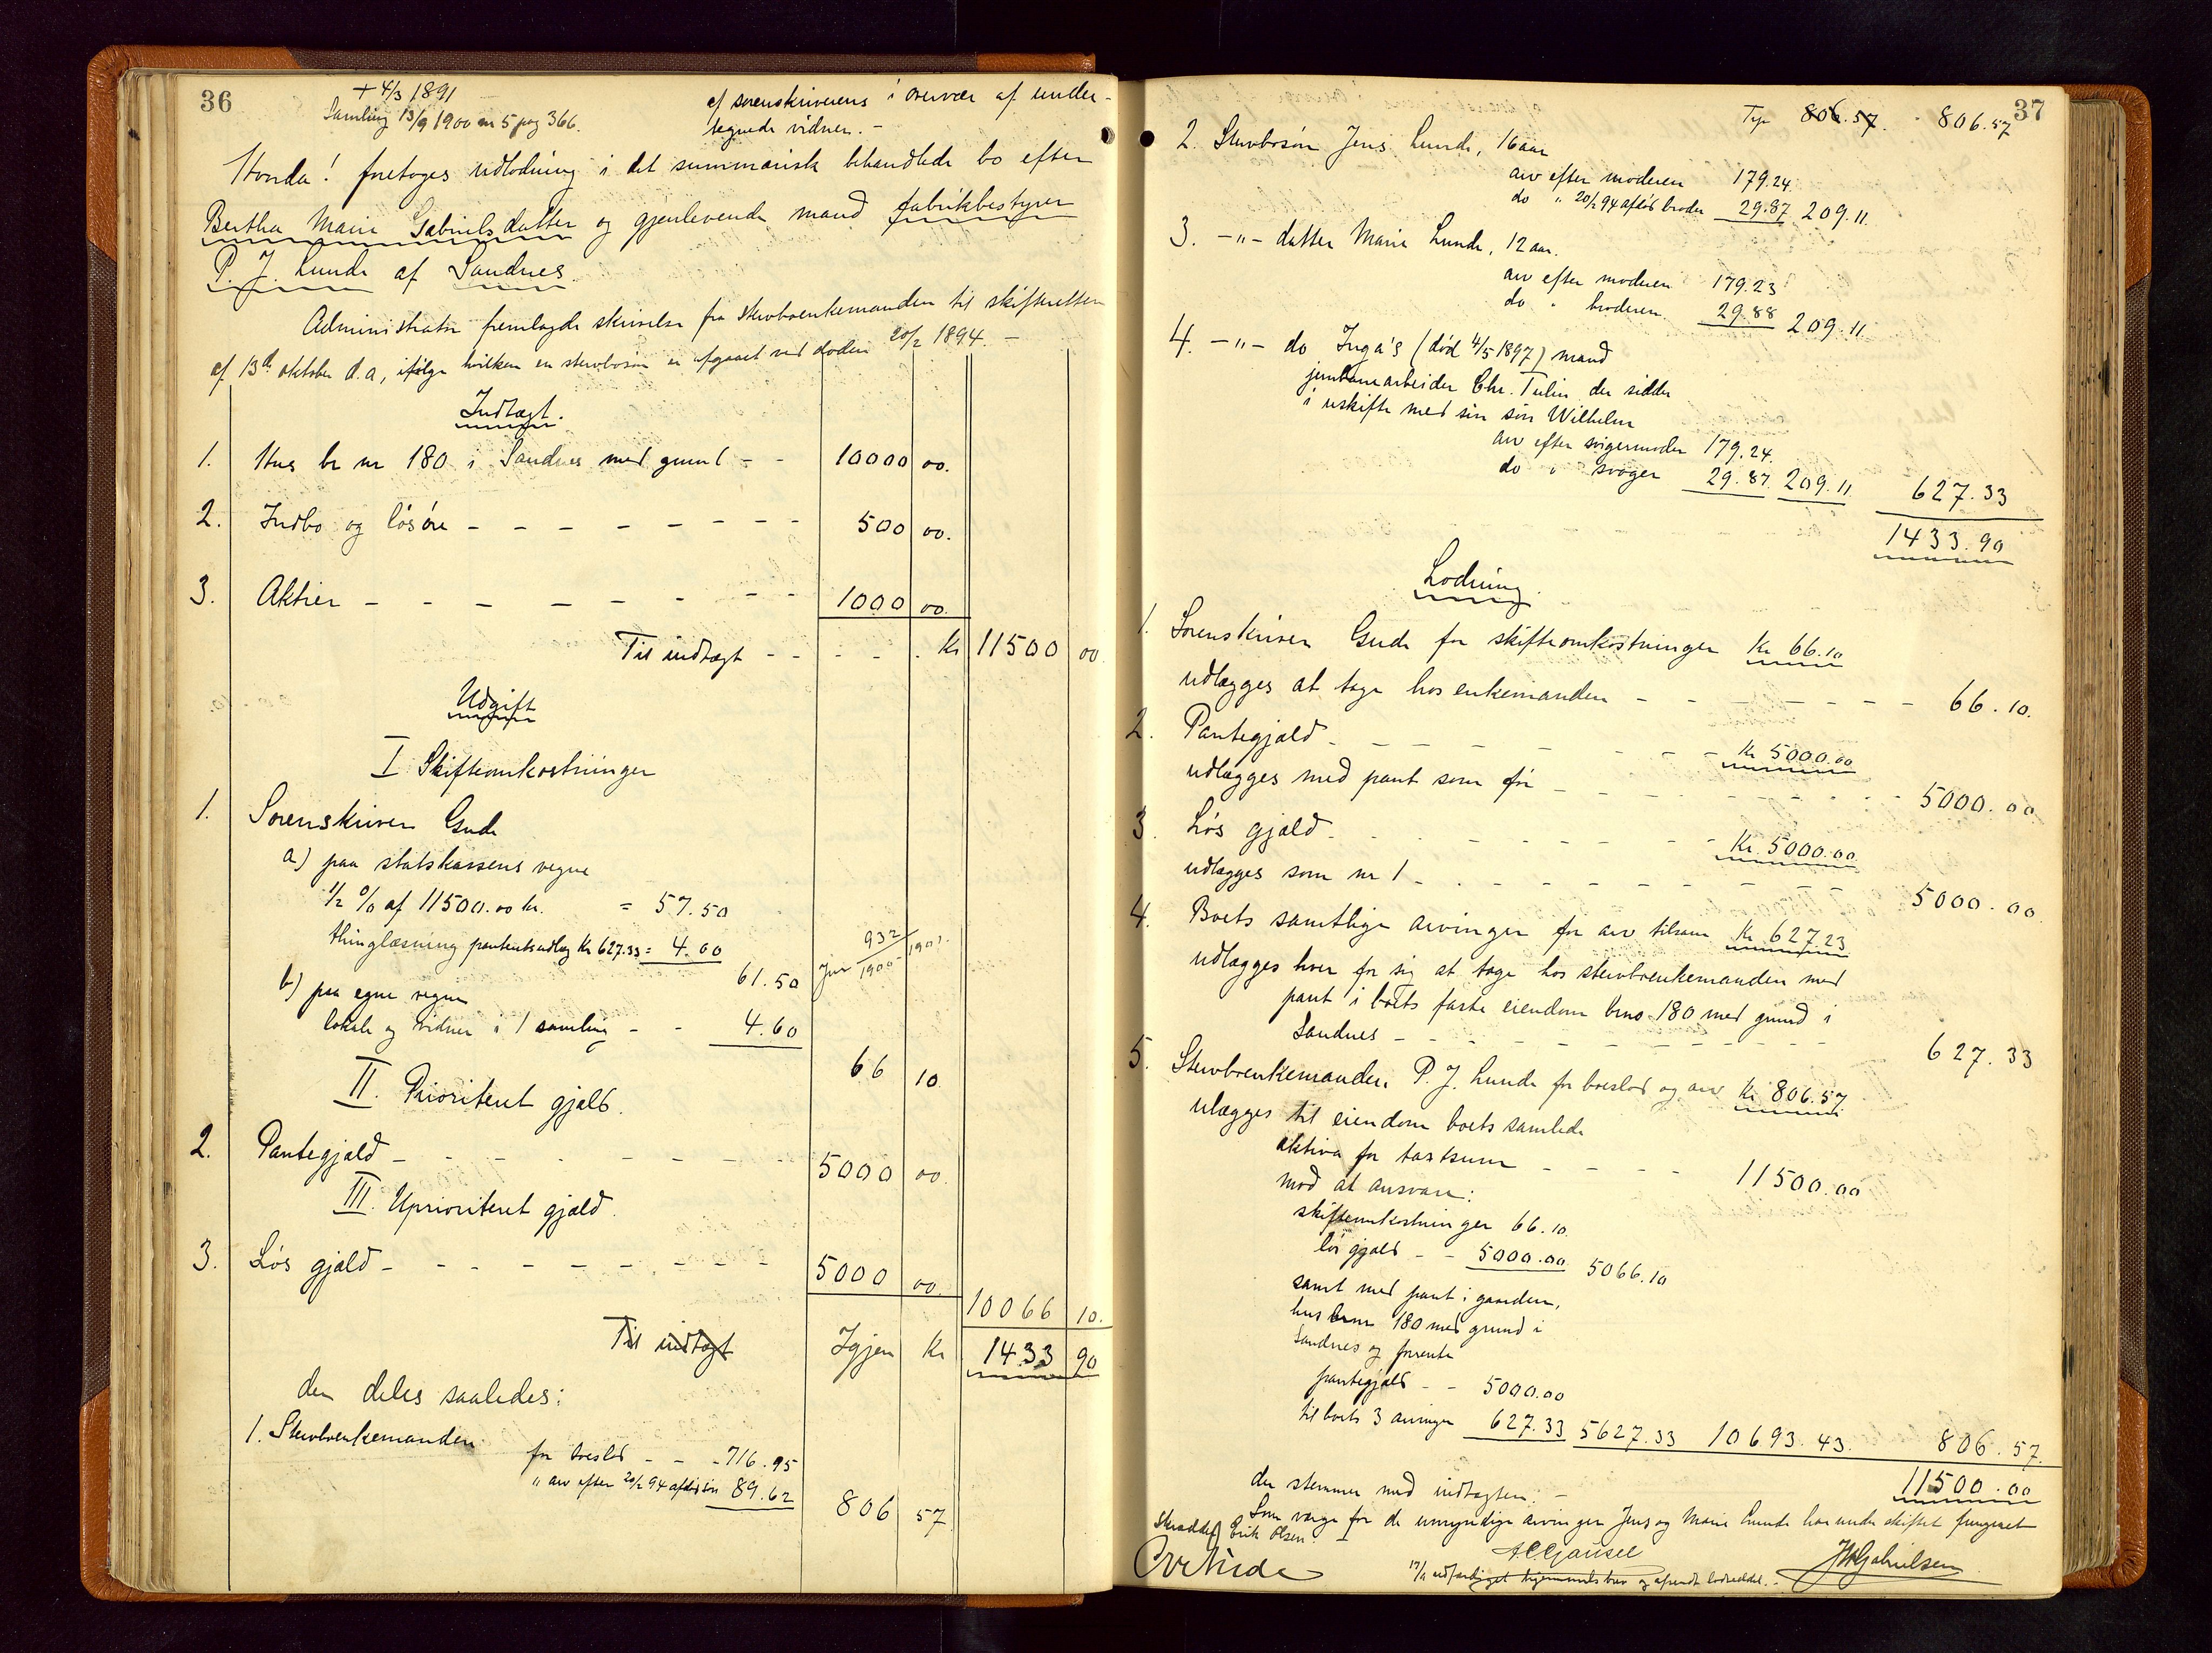 36
+ 4/3 1891
Samling 13/9 1900 nr 5 pag 366.
af sorenskriverens i overvær af under-
tegnede vidner. -
foretoges udlodning i det summarisk behandlede bo efter
Bertha Marie Gabrielsdatter og gjenlevende mand fabrikbestyrer
P. J. Lunde af Sandnes.
Administrator fremlagde skrivelse fra stervboenkemanden til skifteretten
af 13de oktober d.a, ifølge hvilken en stervbosøn er afgaaet ved døden 20/2 1894. -
Indtægt.
1. Hus br nr 180 i Sandnes med grund - - 10000 00.
2. Indbo og løsøre - - - - - - - - - 500 00.
3. Aktier - - - - - - - - - 1000 00.
Til indtægt - - - - . Kr 11500 00
Udgift
I Skifteomkostninger
1. Sorenskriver Gude
a) paa statskassens vegne
1/2 % af 11500.00 kr. = 57.50
thinglæsning panteretsudlæg Kr 627.33 = 4.00
61.50 Jnr 932/1900 1901.
b) paa egne vegne
lokale og vidner i 1 samling - - 4.60
66 10
II. Prioriteret gjæld.
2. Pantegjæld - - - - - - - - 5000 00.
III. Uprioriteret gjæld.
3. Løs gjæld - - - - - - - - - 5000 00.
10066 10.
Til indtægt Igjen Kr 1433 90
der deles saaledes:
1. Stervboenkemanden
for boeslod - - - 716.95
" arv efter 20/2 94 afdød søn 89.62
806 57
37
Tr. 806.57. 806.57
2. Stervbosøn Jens Lunde, 16 aar
arv efter moderen 179.24.
do " 20/2 94 afdød broder 29.87 209.11.
3. -"- datter Marie Lunde, 12 aar.
arv efter moderen 179.23
do " broderen 29.88 209.11.
4. -"- do Inga's (død 4/5 1897) mand
jernbanearbeider Chr. Tulin der sidder
i uskifte med sin søn Wilhelm
arv efter svigermoder 179.24.
do " svoger 29.87. 209.11. 627.33
1433.90
Lodning.
1. Sorenskriver Gude for skifteomkostninger Kr 66.10
udlægges at tage hos enkemanden - - - - - - - 66.10.
2. Pantegjæld - - - - - - - - Kr 5000.00
udlægges med pant som før - - - - - - - - 5000.00
3. Løs gjæld - - - - - - - Kr. 5000.00
udlægges som nr 1 - - - - - - - - - 5000.00
4. Boets samtlige arvinger for arv tilsam. Kr 627.23
udlægges hver for sig at tage hos stervboenkemanden med
pant i boets faste eiendom brno 180 med grund i
Sandnes - - - - - - - - - - - 627.33
5. Stervboenkemanden P. J. Lunde for boeslod og arv Kr 806.57
ulægges til eiendom boets samlede
aktiva for taxtsum - - - - 11500.00
mod at ansvare:
skifteomkostninger 66.10.
løs gjæld - - 5000.00 5066.10
samt med pant i gaarden,
hus brno 180 med grund i
Sandnes og forrente
pantegjæld - - 5000.00
til boets 3 arvinger 627.33 5627.33 10693.43. 806.57.
11500.00
der stemmer med indtægten. -
Som værge for de umyndige arvinger Jens og Marie Lunde har under skiftet fungeret
Skrædder Erik Olsen.
17/11 udfærdiget hjemmelsbrev og afsendt lodseddel. -